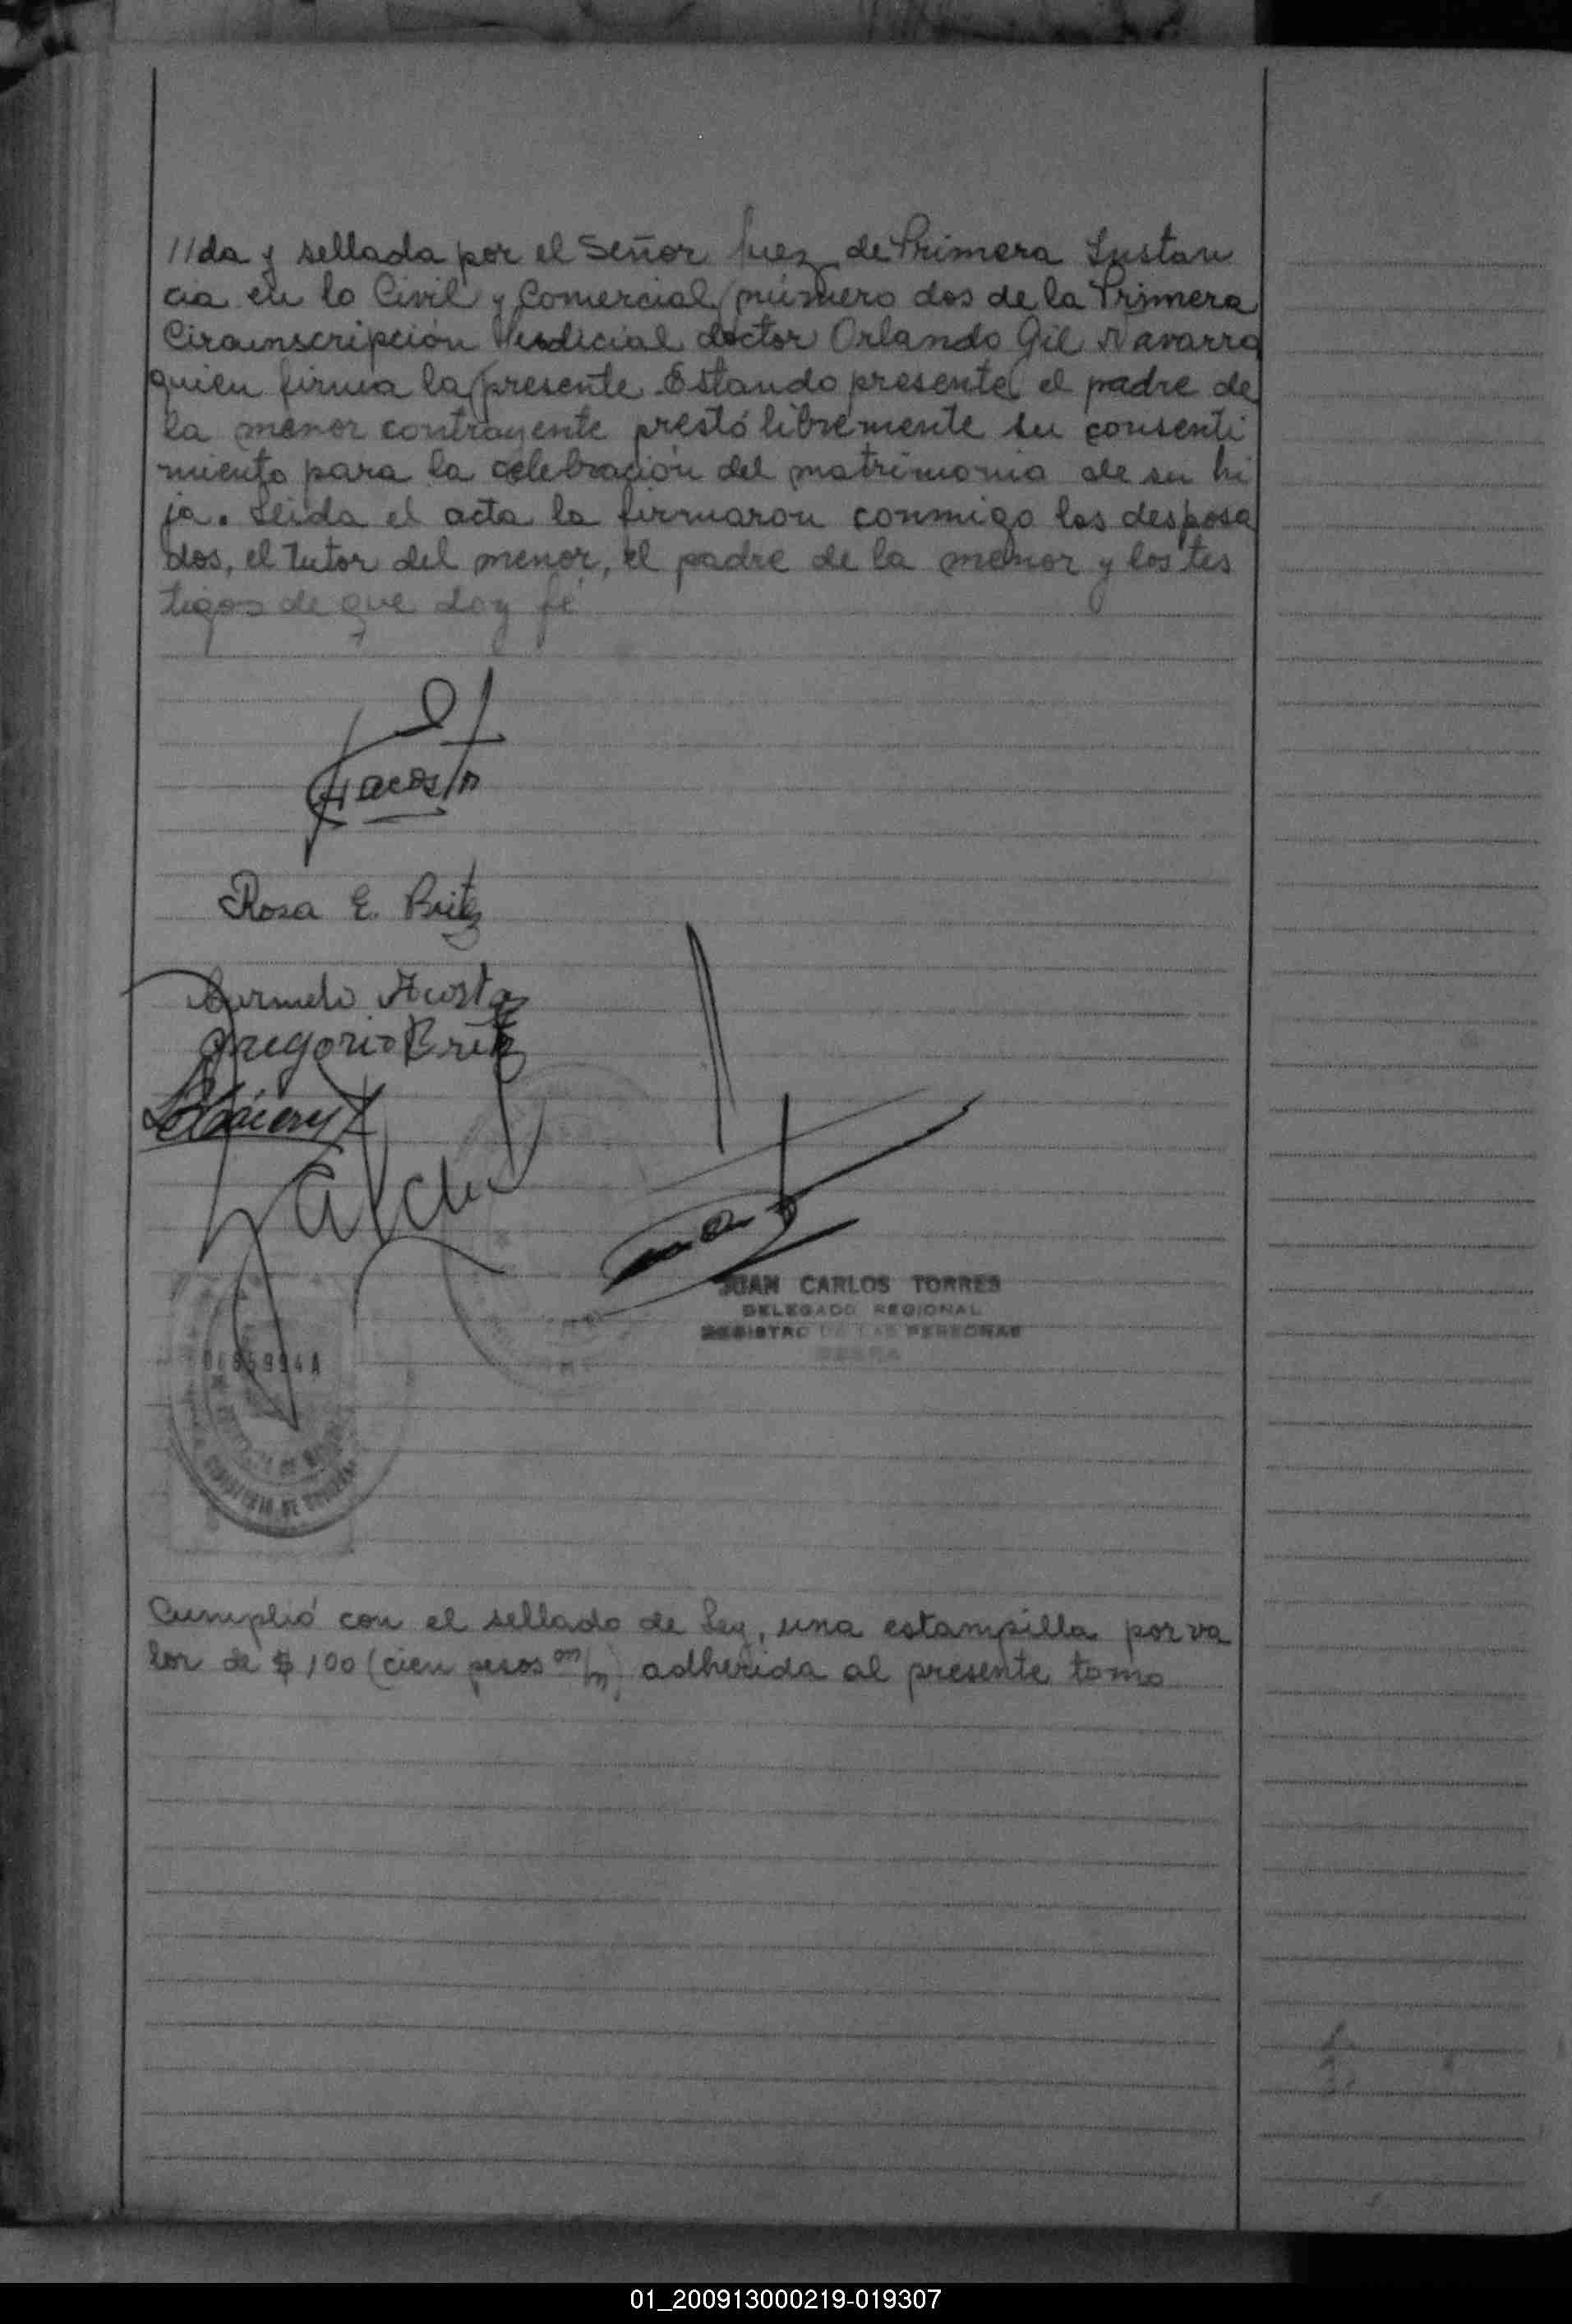 //da y sellada por el Señor Juez de Primera Instan
cia en lo Civil y Comercial número dos de la Primera
Circunscripción Judicial doctor Orlando Gil Navarro
quien firma la presente Estando presente el padre de
la menor contrayente prestó libremente su consenti
miento para la celebración del matrimonio de su hi
ja. Leida el acta la firmaron conmigo los desposa
dos, el tutor del menor, el padre de la menor y los tes
tigos de que doy fé
Acosta
Rosa E. Britz
Carmelo Acosta
Gregorio Britz
JUAN CARLOS TORRES
DELEGADO REGIONAL
REGISTRO DE LAS PERSONAS
Cumplió con el sellado de Ley, una estampilla por va
lor de $ 100 (cien pesos m/n) adherida al presente tomo
01_200913000219-019307